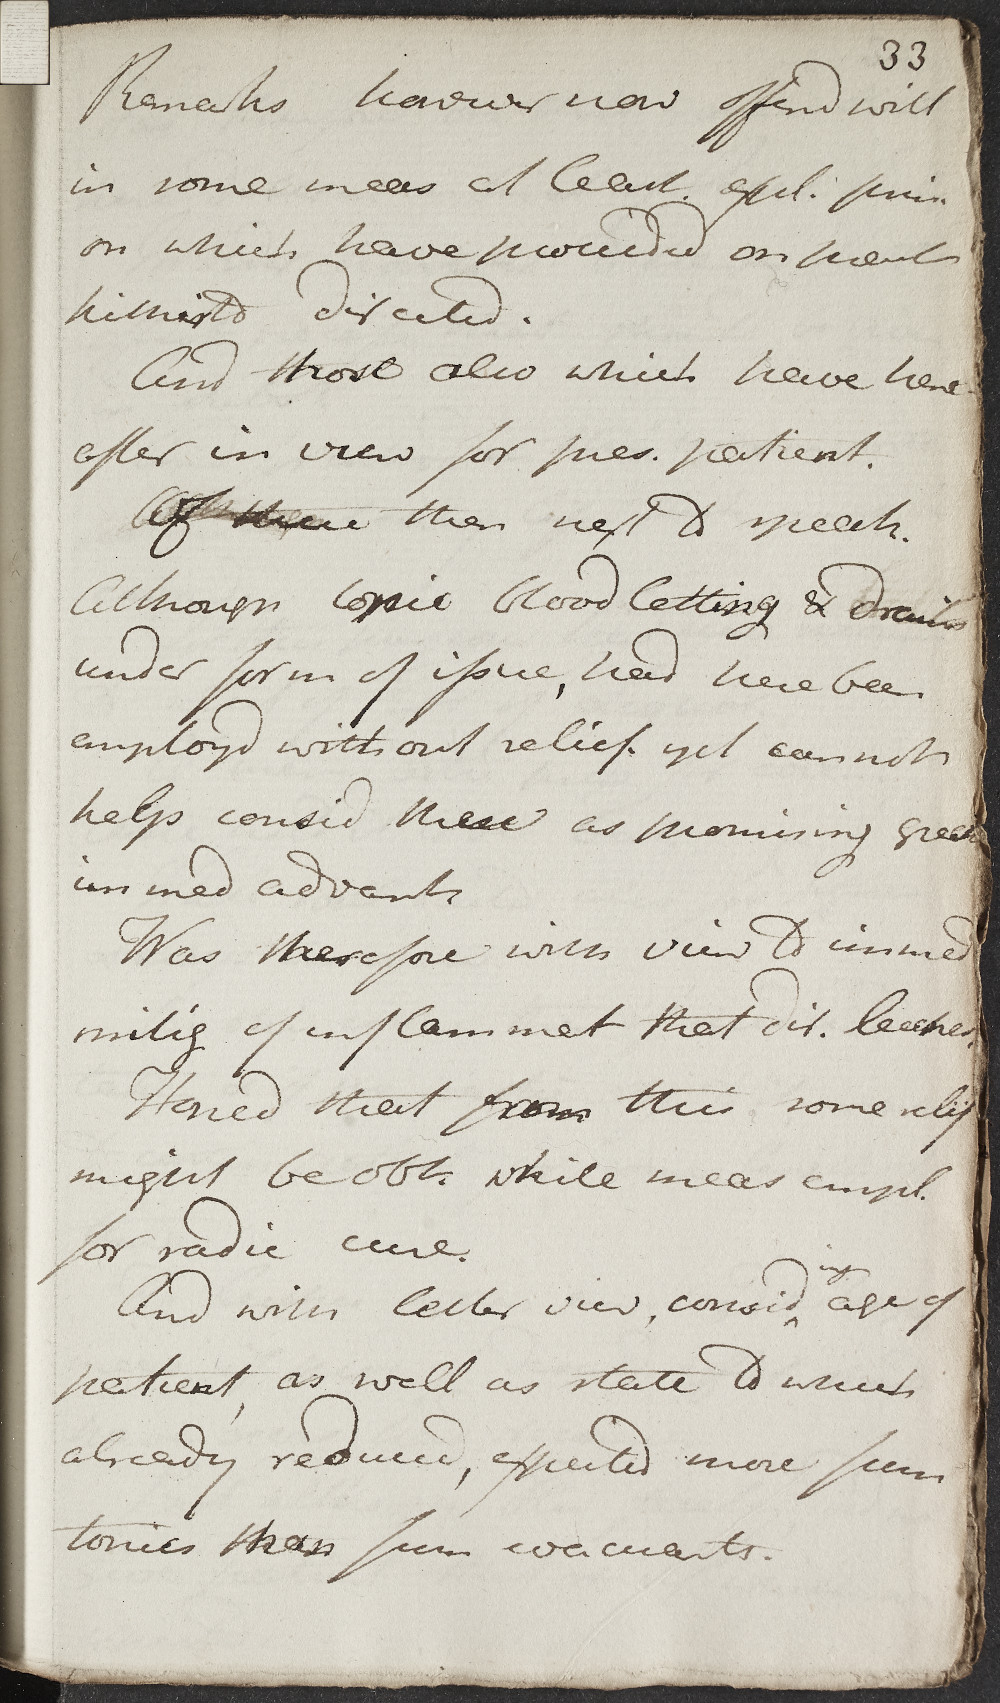 33
Remarks however now offerd will
in some meas at least. expl. prin.
on which have proceeded on pract
hitherto directed.
And those also which have here-
after in view for pres. patient.
Of these then next to speak.
Although topic blood letting & drains
under form of issue, had here been
employd without relief. yet cannot
help consid these as promising great
immed advant
Was therefore with view to immed
mitig of inflammat that dir. leeches.
Hoped that from this some relif
might be obt. while meas empl.
for radic cure.
And with latter view, considing age of
patient, as well as state to which
already reduced, expected more from
tonics than from evacuants.